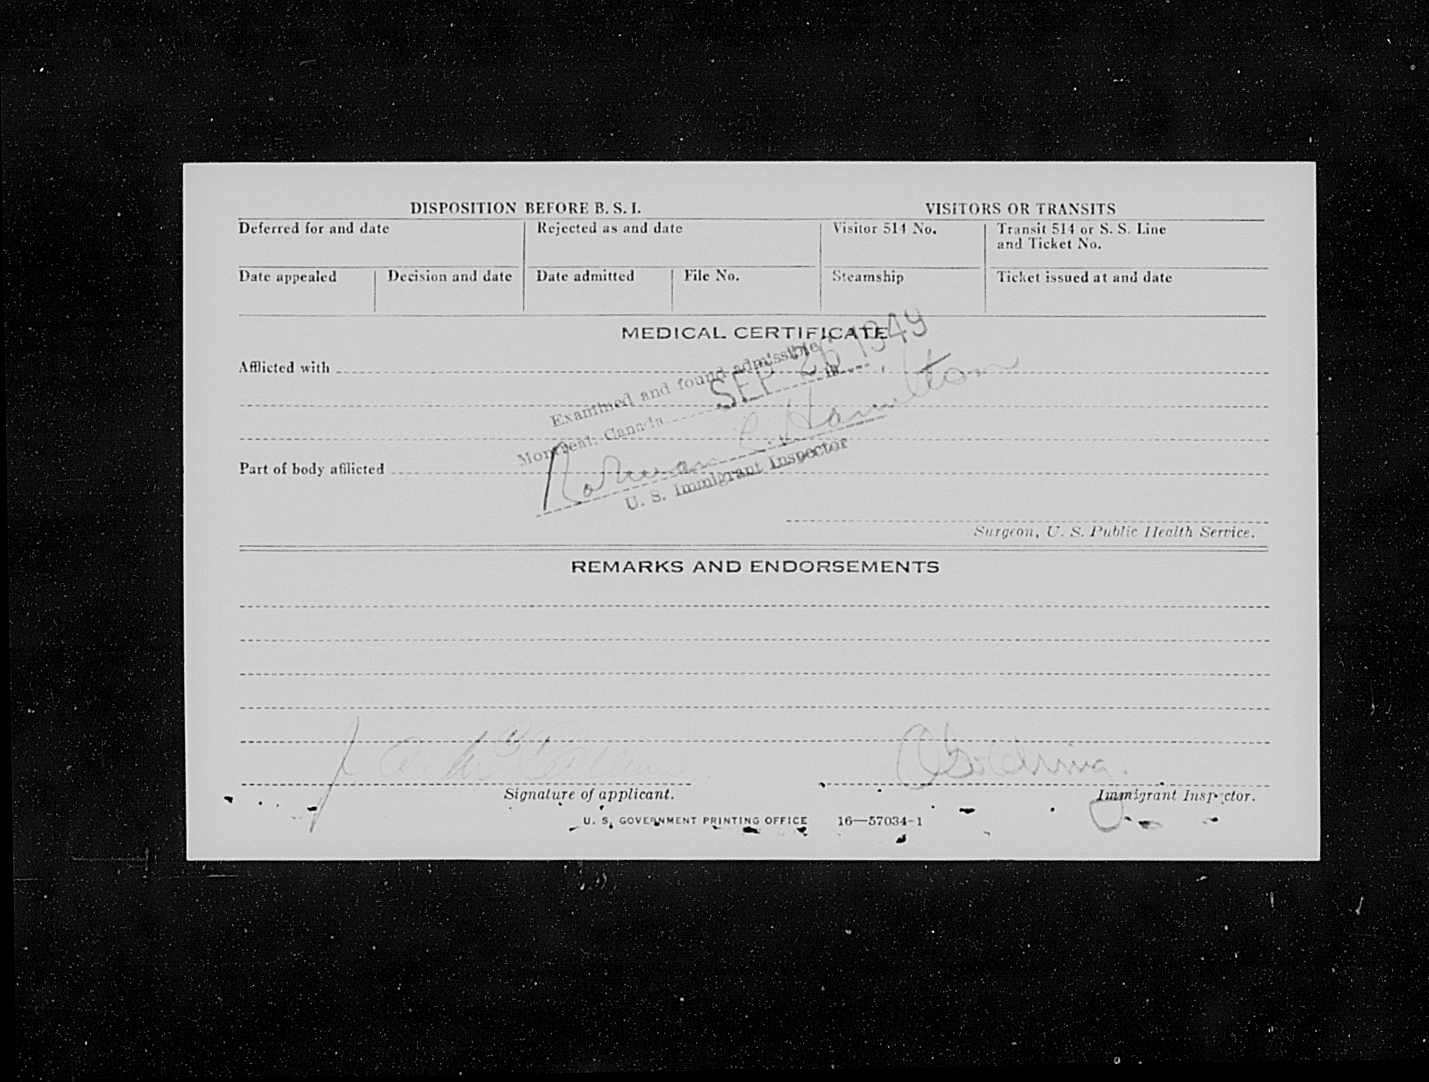 DISPOSITION BEFORE B. S. I.
VISITORS OR TRANSITS
Deferred for and date
Rejected as and date
Visitor 514 No.
Transit 514 or S. S. Line
and Ticket No.
Date appealed
Decision and date
Date admitted
File No.
Steamship
Ticket issued at and date
MEDICAL CERTIFICATE
Afflicted with
Examined and found admissible
Montreal, Canada SEP 26 1949
Norman C. Hamilton
U. S. Immigrant Inspector
Part of body afflicted
Surgeon, U. S. Public Health Service.
REMARKS AND ENDORSEMENTS
Goldring
Signature of applicant.
Immigrant Inspector.
U. S. GOVERNMENT PRINTING OFFICE 16—57034-1